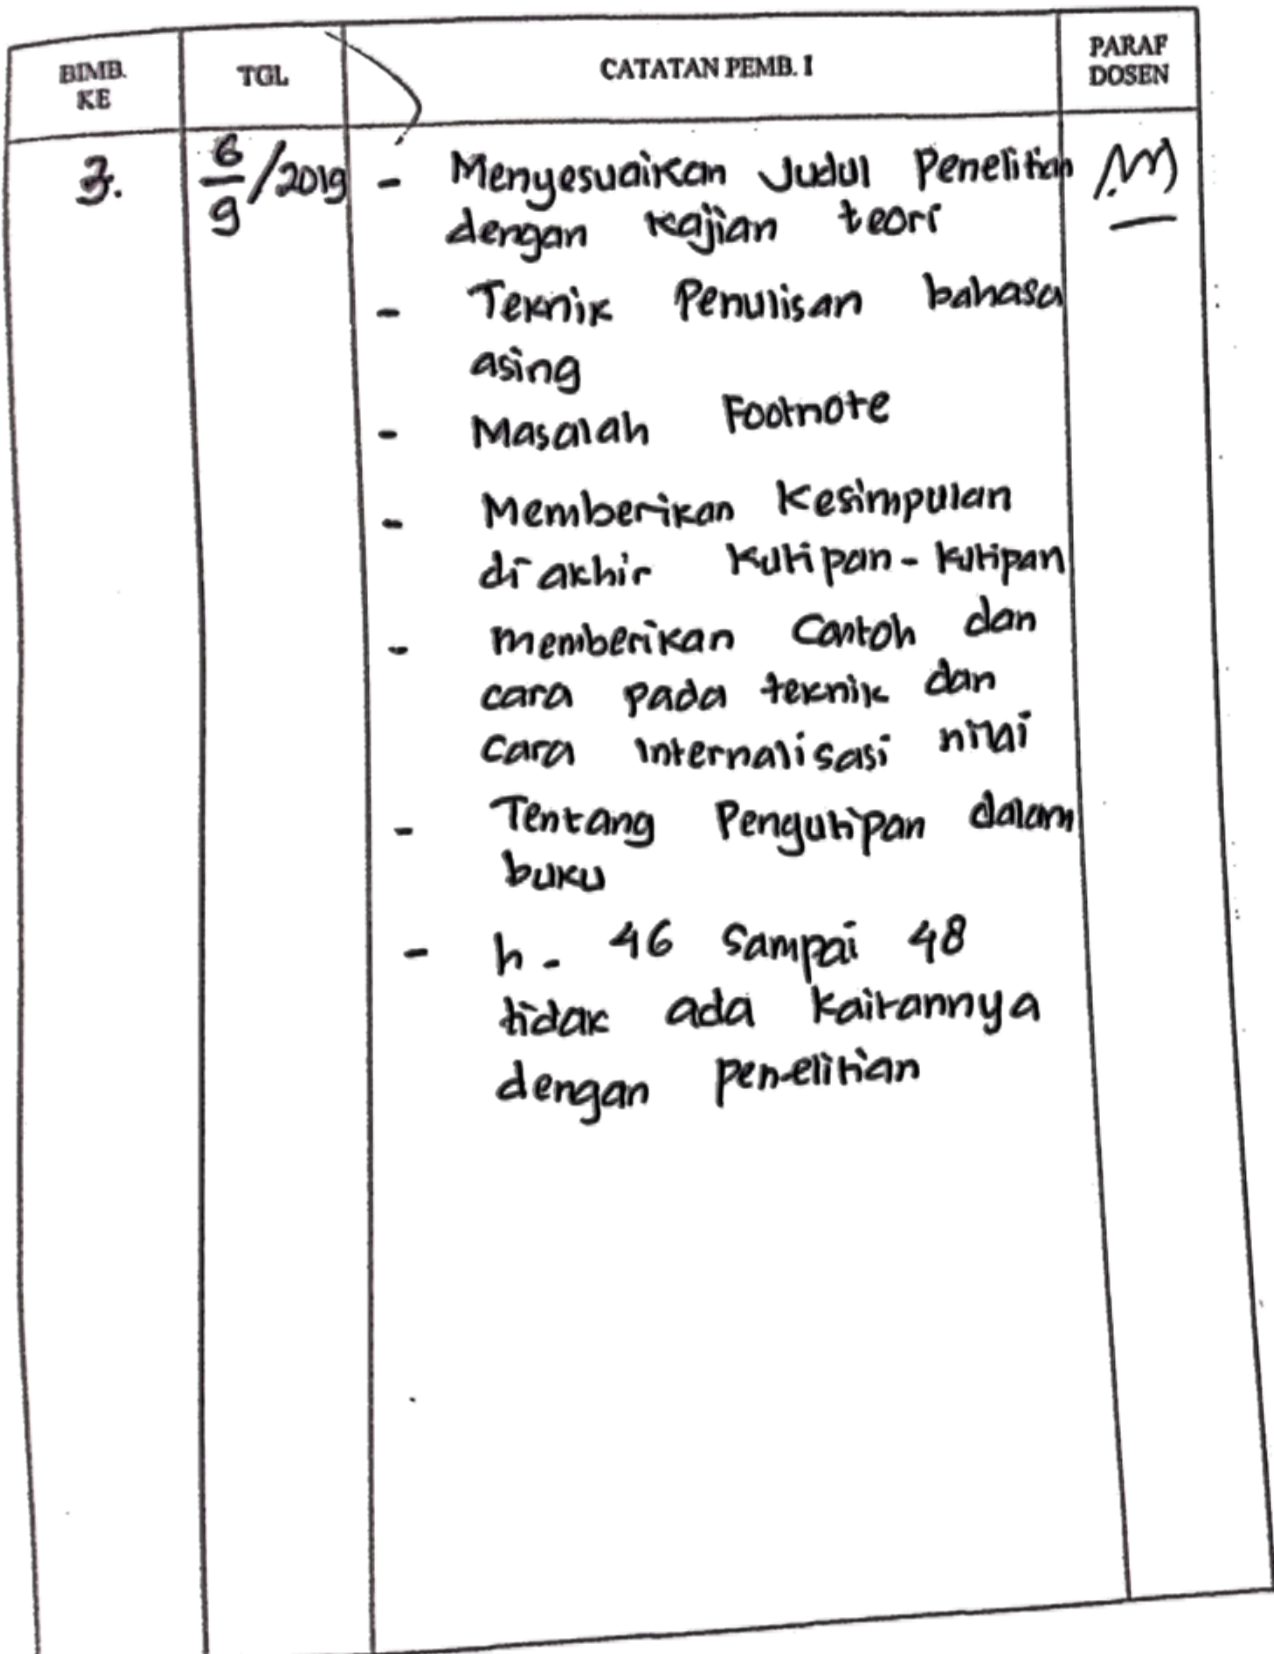 BIMB. KE TGL CATATAN PEMB. I PARAF DOSEN
3. 6/9/2019 - Menyesuaikan Judul Penelitian
dengan kajian teori
- Teknik Penulisan bahasa
asing
- Masalah Footnote
- Memberikan Kesimpulan
di akhir kutipan - kutipan
- memberikan Contoh dan
cara pada teknik dan
cara internalisasi nilai
- Tentang Pengutipan dalam
buku
- h. 46 Sampai 48
tidak ada kaitannya
dengan penelitian